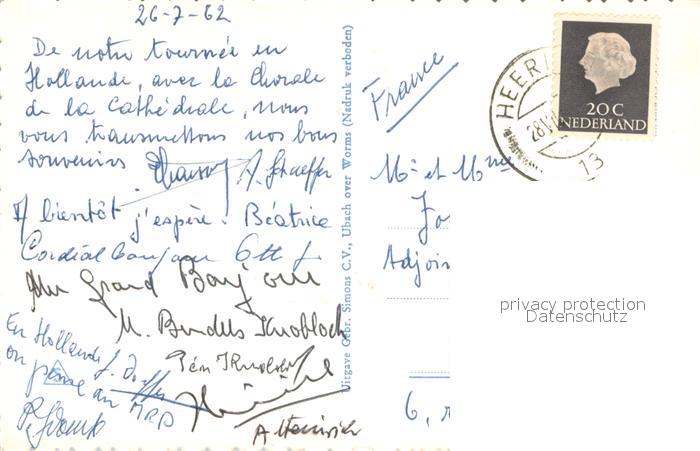 26-7-62
De notre tournée en
Hollande, avec la Chorale
de la Cathédrale, nous
vous transmettons nos bons
souvenirs A. Schaeffer
A bientôt j'espère. Béatrice
Cordial bonjour
Un Grand Bonjour
M. Knobloch
En Hollande
on pense au MRP
A Heinrich
Uitgave Gebr. Simons C.V., Ubach over Worms (Nadruk verboden)
France
HEER
28 VII
13
20 C
NEDERLAND
Mr et Mme
Jo
Adjoin
6, r
privacy protection
Datenschutz